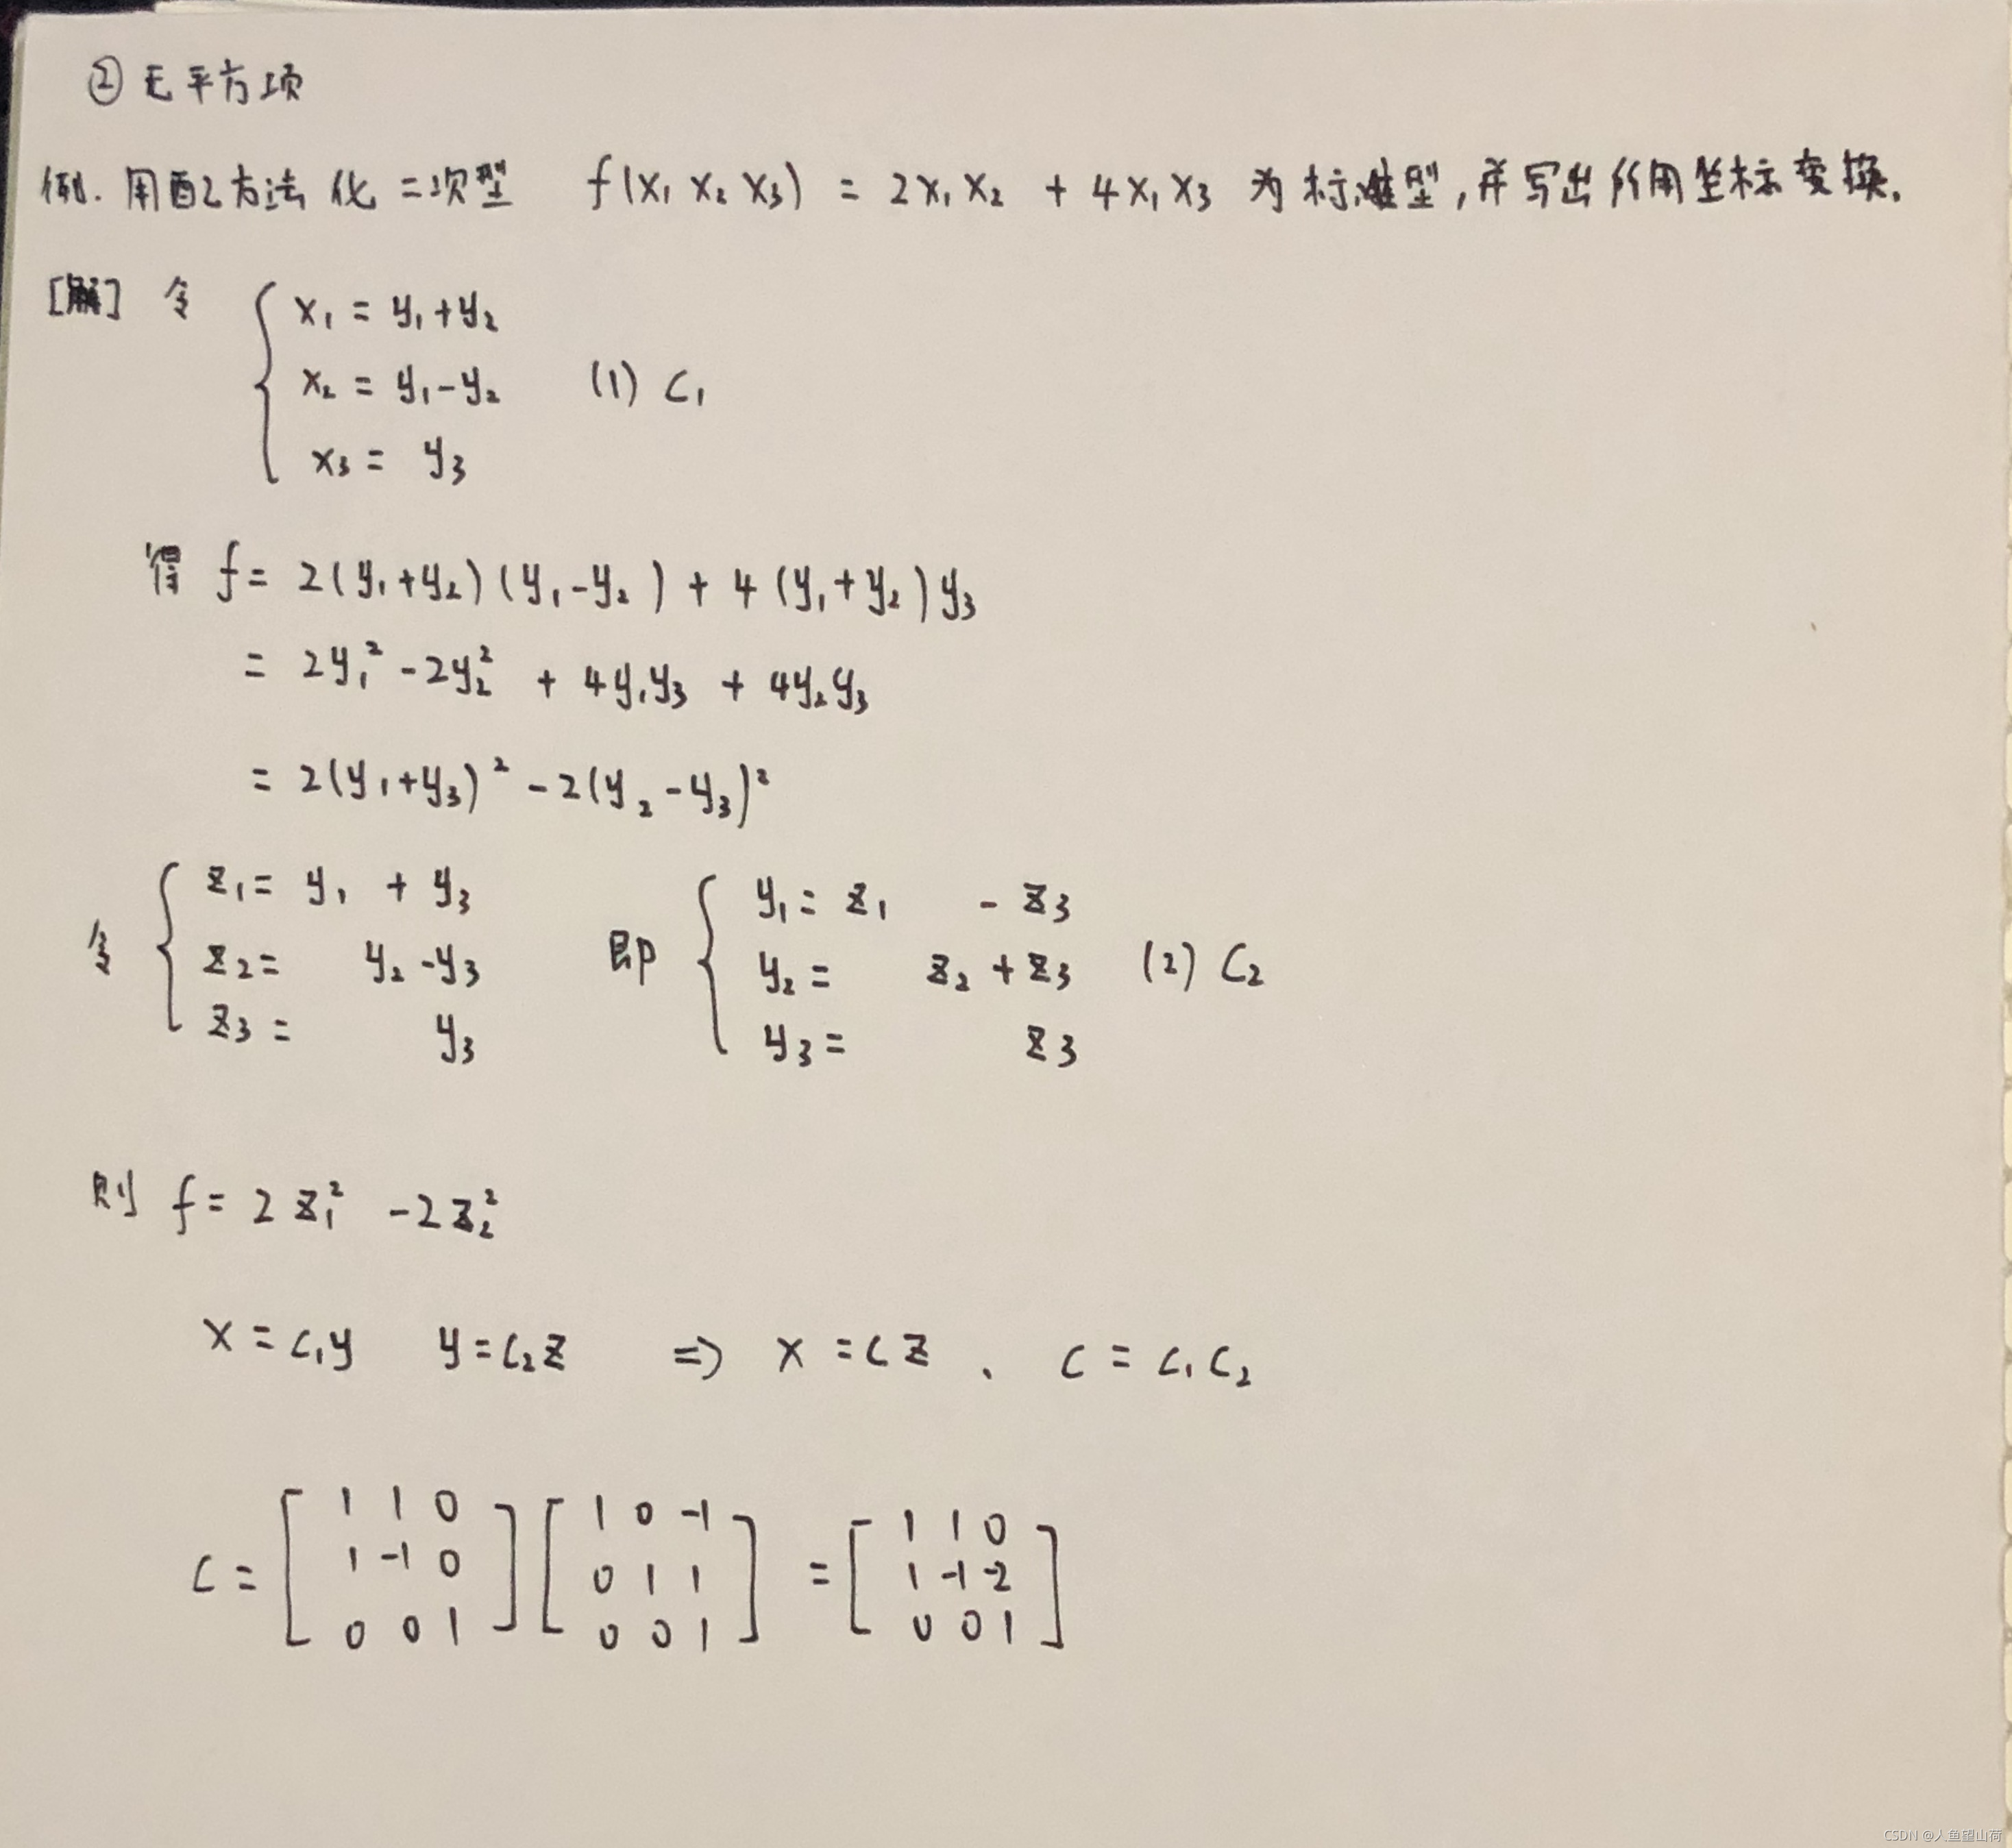 ② 无平方项
例. 用配方法化二次型 f(x₁ x₂ x₃) = 2x₁x₂ + 4x₁x₃ 为标准型,并写出所用坐标变换.
[解] 令 { x₁ = y₁+y₂
x₂ = y₁-y₂ (1) C₁
x₃ = y₃
得 f = 2(y₁+y₂)(y₁-y₂) + 4(y₁+y₂)y₃
= 2y₁² -2y₂² + 4y₁y₃ + 4y₂y₃
= 2(y₁+y₃)² -2(y₂-y₃)²
令 { z₁ = y₁ + y₃ 即 { y₁ = z₁ - z₃
z₂ = y₂-y₃ y₂ = z₂ + z₃ (2) C₂
z₃ = y₃ y₃ = z₃
则 f = 2z₁² -2z₂²
x = C₁y y = C₂z ⇒ x = Cz 、 C = C₁C₂
C = [ 1 1 0 ] [ 1 0 -1 ] = [ 1 1 0 ]
1 -1 0 0 1 1 1 -1 -2
0 0 1 0 0 1 0 0 1
CSDN @人鱼望山荷